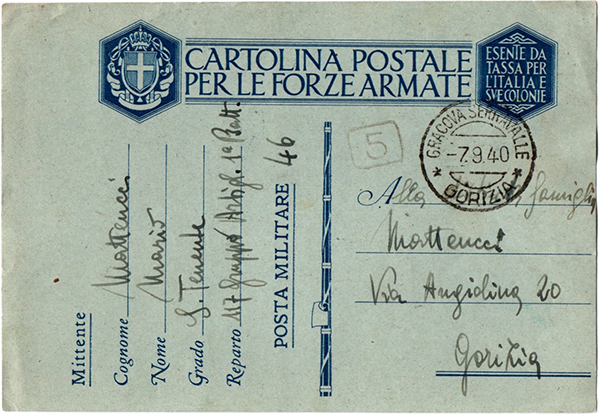 CARTOLINA POSTALE
PER LE FORZE ARMATE
ESENTE DA
TASSA PER
L'ITALIA E
SVE COLONIE
Mittente
Cognome Matteucci
Nome Mario
Grado S. Tenente
Reparto 117 Gruppo Artigl. 1a Batt.
POSTA MILITARE 46
5
GRACOVA SERRAVALLE
-7.9.40
* GORIZIA *
Alla famiglia
Matteucci
Via Angiolina 20
Gorizia